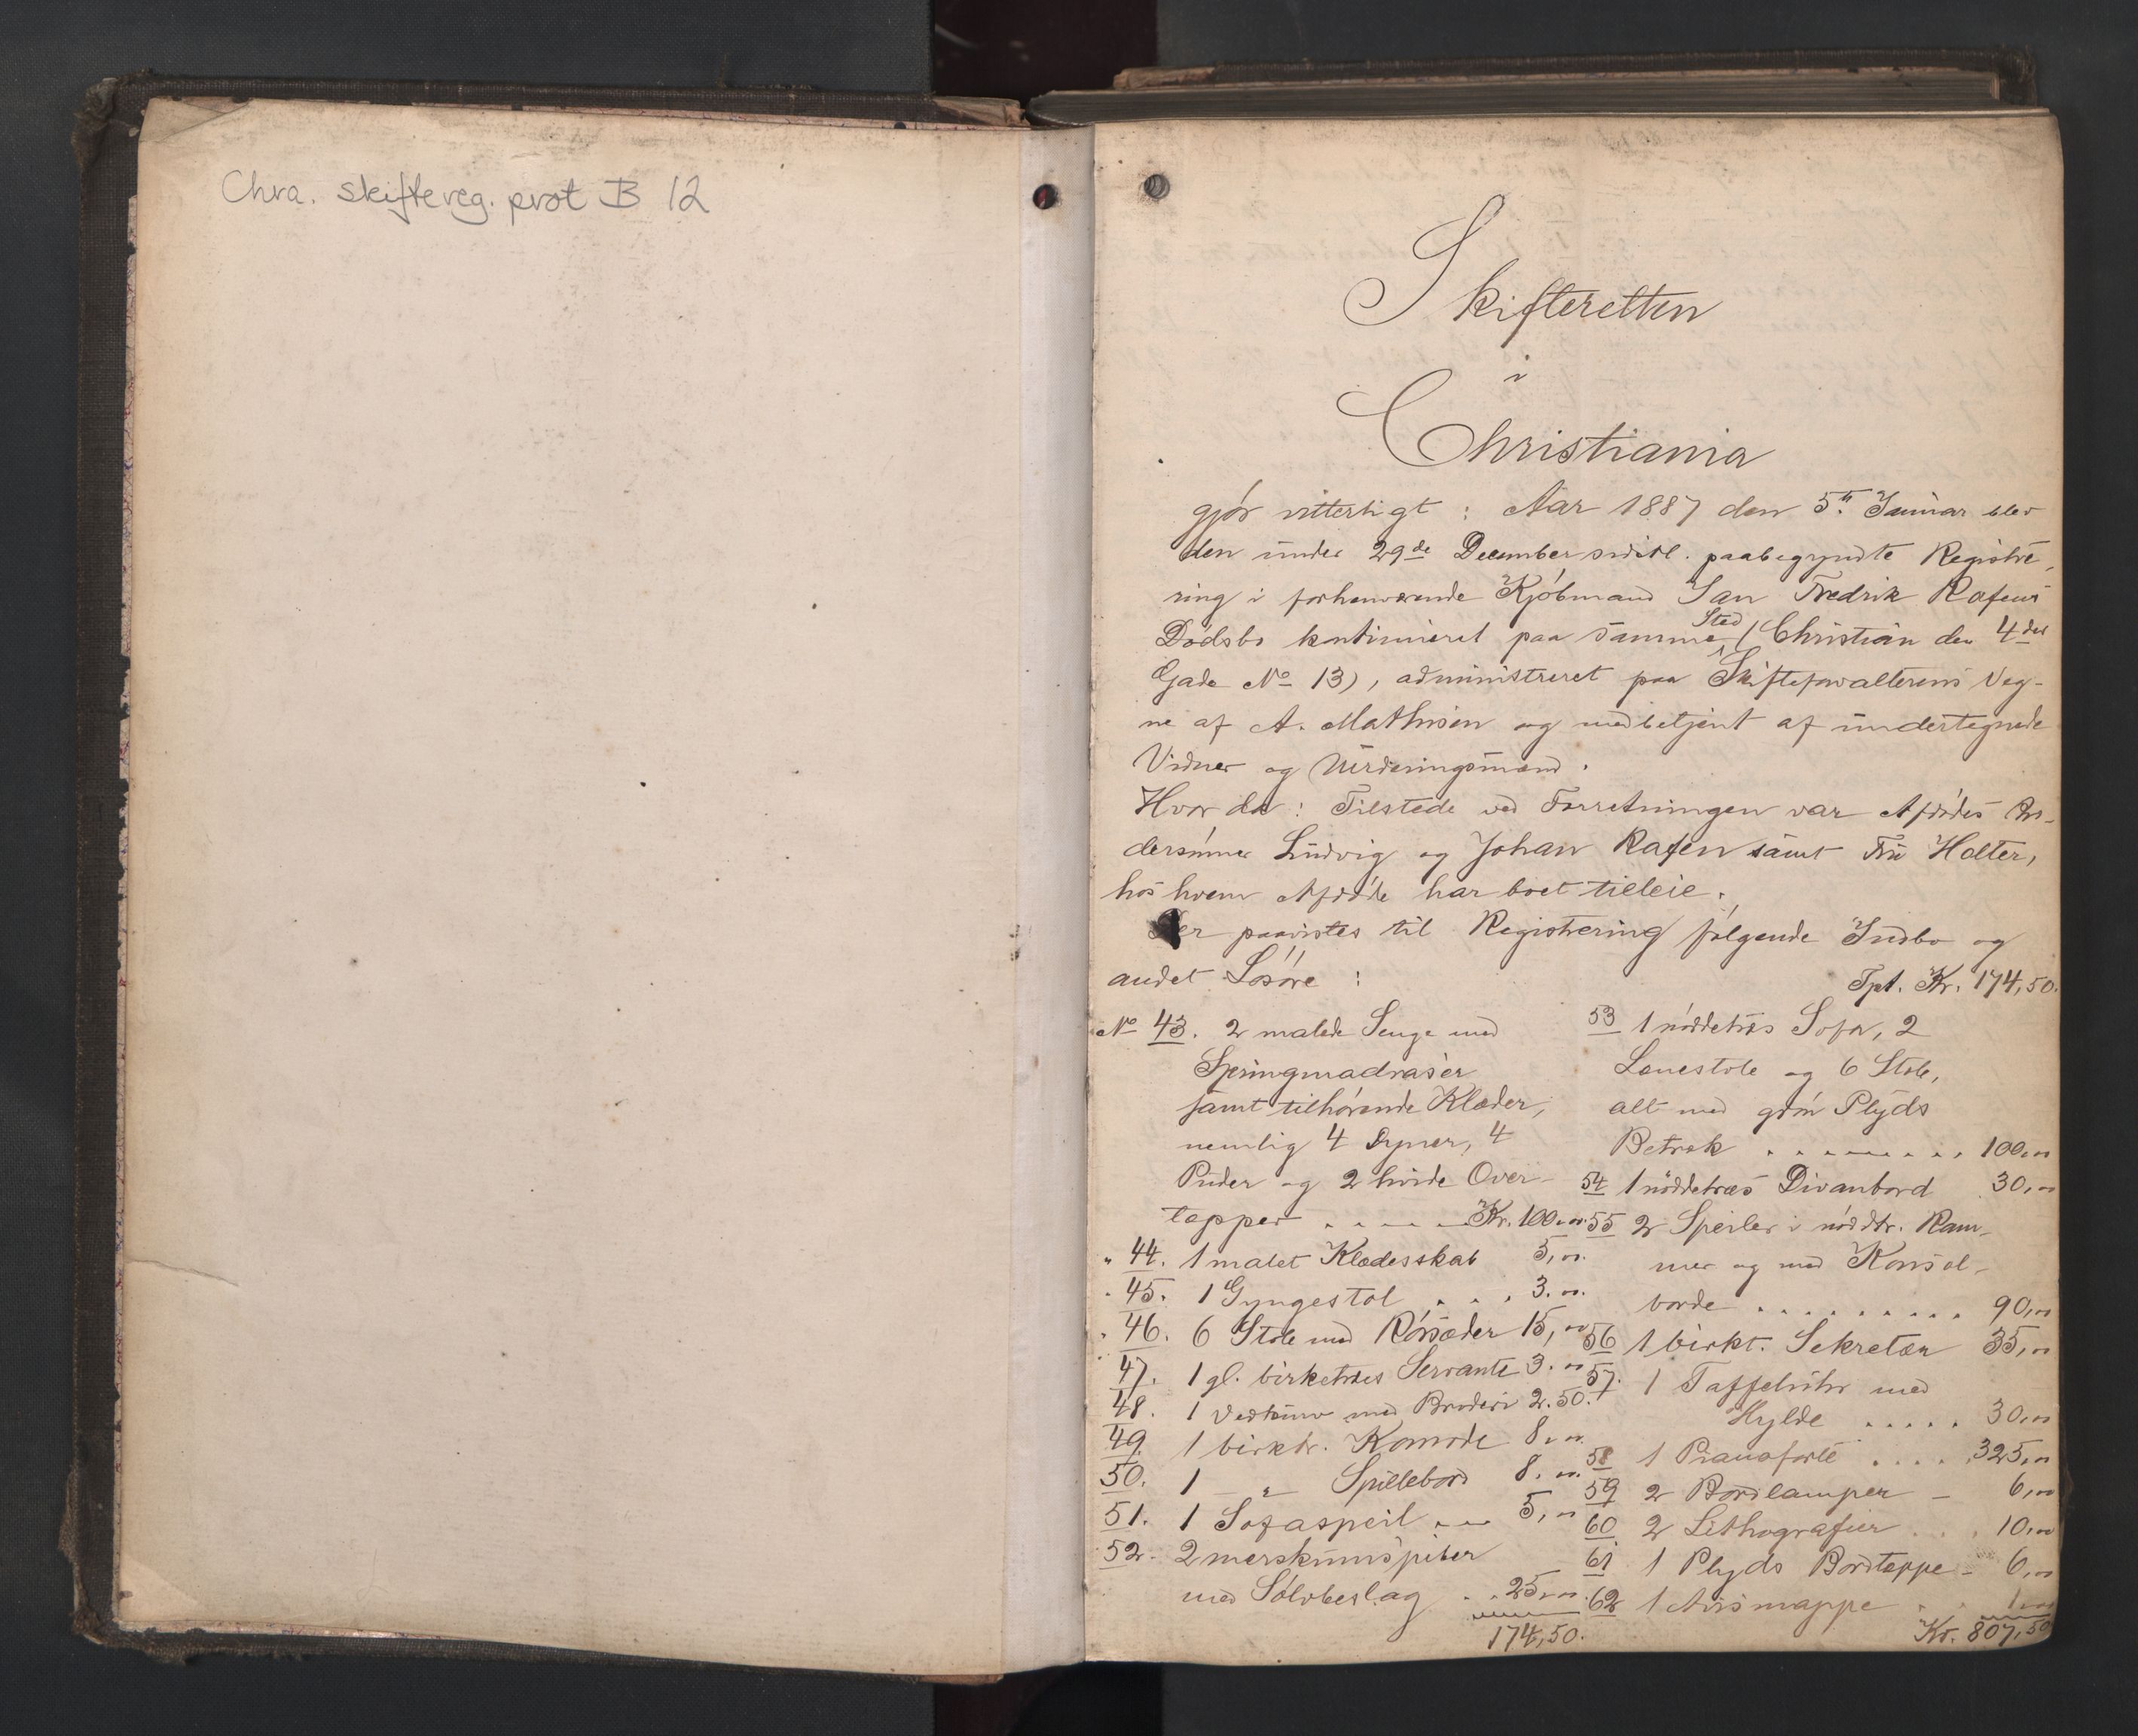 Chra. skiftereg. prot B 12
Skifteretten
i
Christiania
gjør vitterligt : Aar 1887 den 5te Januar blev
den under 29de December sidstl. paabegyndte Registre-
ring i forhenværende Kjøbmand Jan Fredrik Rafens
Dødsbo kontinueret paa samme Sted (Christian den 4des
Gade No 13), administreret paa Skifteforvalterens Veg-
ne af A. Mathisen og medbetjent af undertegnede
Vidner og Vurderingsmænd.
Hvor da : Tilstede ved Forretningen var Afdødes Bro-
dersønner Ludvig og Johan Rafen samt Fru Holter,
hos hvem Afdøde har boet tilleie.
Der paavistes til Registrering følgende Indbo og
andet Løsøre :
No 43. 2 malede Senge med
Springmadraser
samt tilhørende Klæder,
nemlig 4 Dyner, 4
Puder og 2 hvide Over-
tæpper . . . . Kr. 100,00
" 44. 1 malet Klædesskab 5,00.
" 45. 1 Gyngestol . . . 3.00.
" 46. 6 Stole med Rørsæder 15,00
47. 1 gl. birketræs Servante 3.00
48. 1 med Broderi 2.50.
49. 1 birktr. Komode 8,00.
50. 1 — " — Spillebord 8.00.
51. 1 Sofaspeil . . . 5,00
52. 2 merskumspiber
med Sølvbeslag . . 25,00.
174,50.
Tpt. Kr. 174,50.
53 1 nøddetræs Sofa, 2
Lænestole og 6 Stole,
alt med grøn Plyds
Betræk . . . . . . . . 100,00
54 1 nøddetræs Divanbord 30,00
55 2 Speiler i nøddtr. Ram-
mer og med Konsol-
borde . . . . . . . . . 90,00
56 1 birkt. Sekretær 35,00
57. 1 Taffeluhr med
Hylde . . . . . 30,00
58 1 Pianoforte . . . . . 325,00
59 2 Bordlamper — 6,00
60 2 Lithografier . . . 10,00
61 1 Plyds Bordtæppe - 6,00
62 1 Avismappe . . 1,00
Kr. 807,50